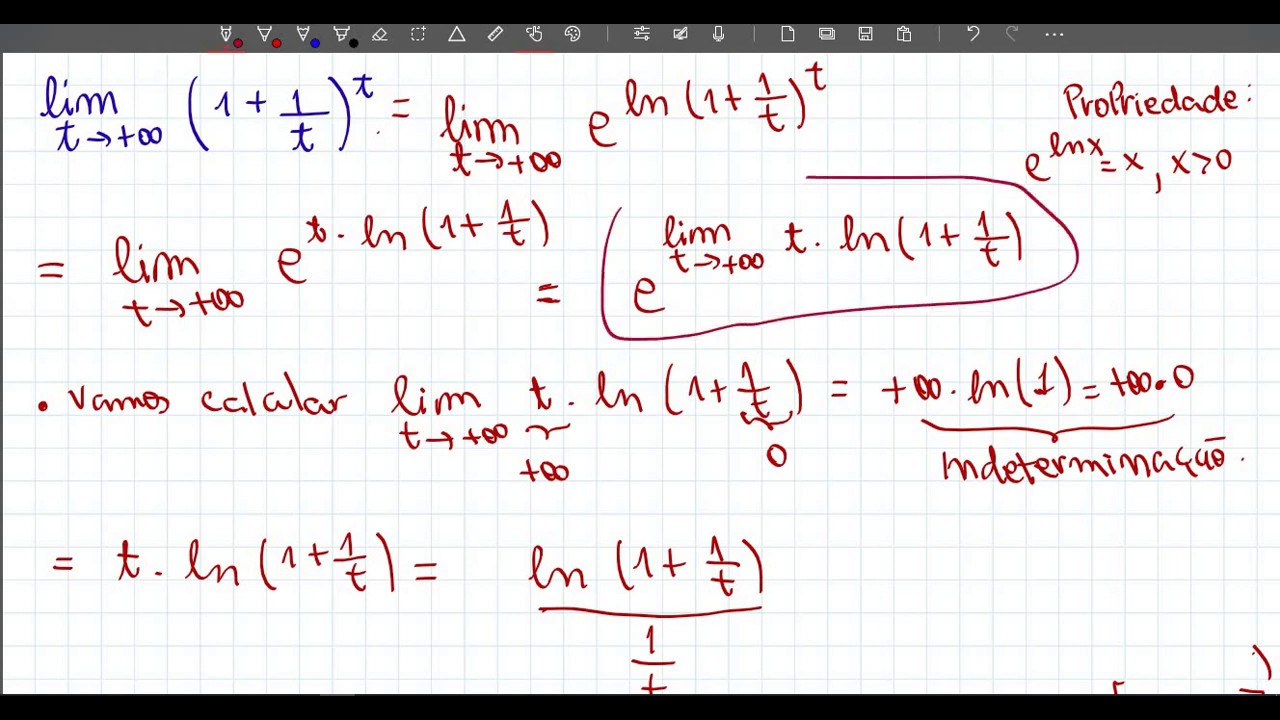 lim t→+∞ (1 + 1/t)^t = lim t→+∞ e^ln(1+1/t)^t
Propriedade:
e^lnx = x, x>0
= lim t→+∞ e^t·ln(1+1/t) = e^lim t→+∞ t·ln(1+1/t)
• Vamos calcular lim t→+∞ t · ln(1+1/t) = +∞·ln(1) = +∞·0
+∞ 0 Indeterminação.
= t·ln(1+1/t) = ln(1+1/t)
1/t